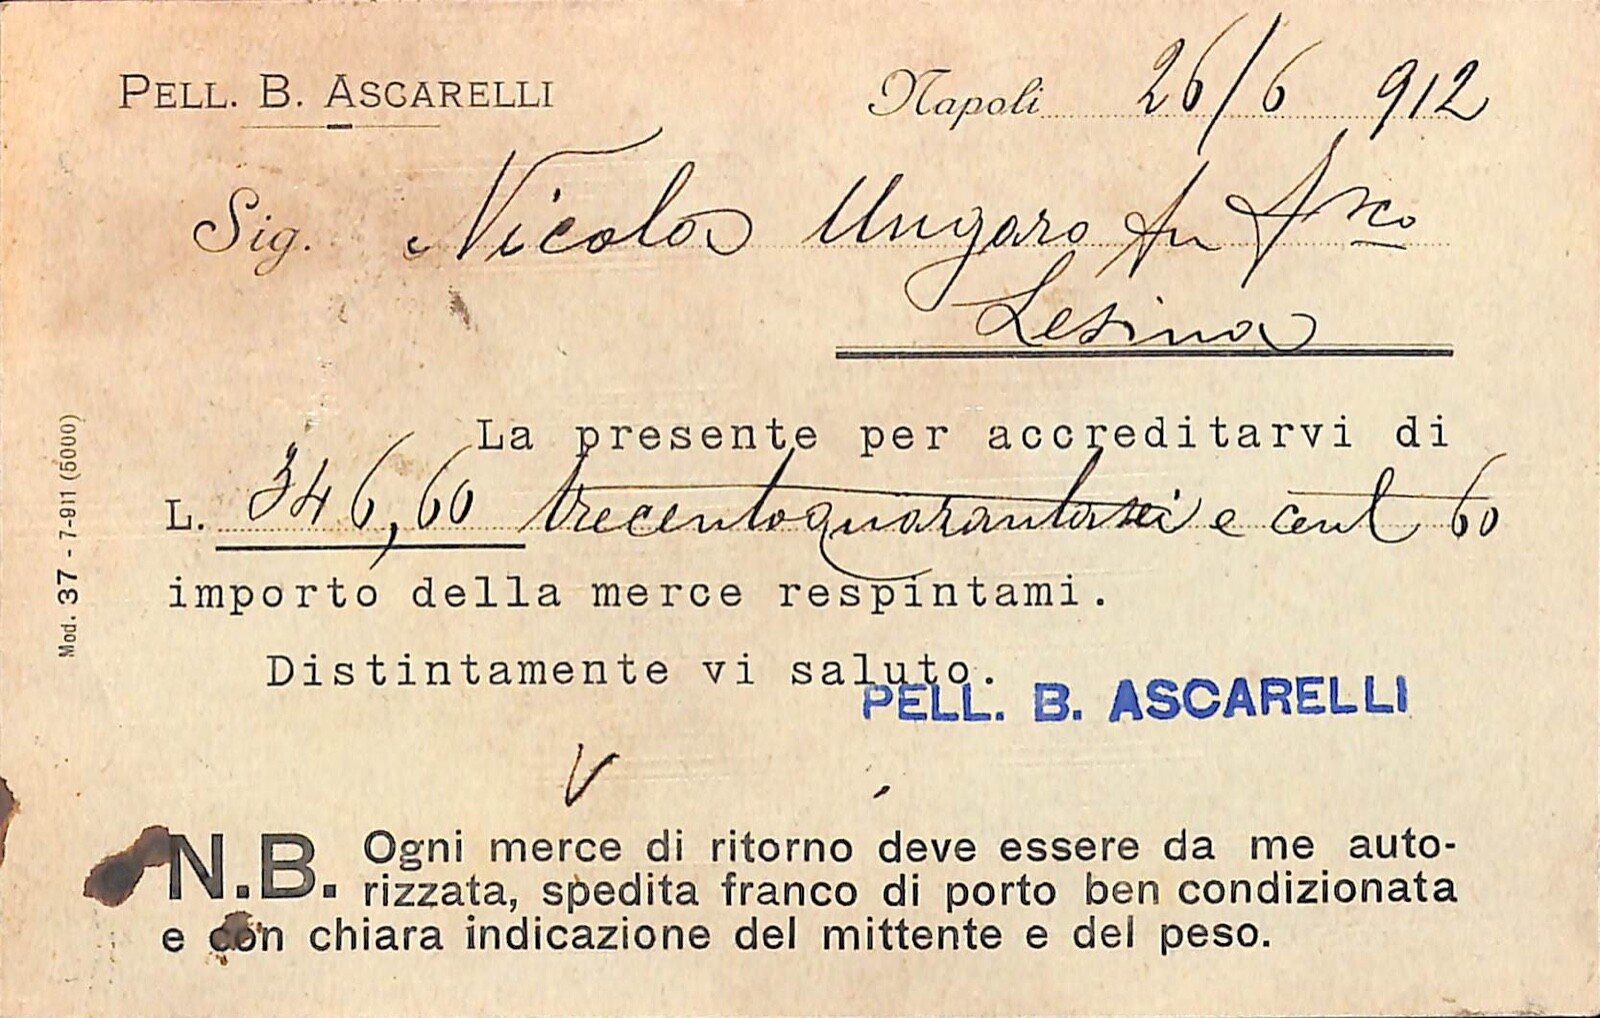 PELL. B. ASCARELLI
Napoli 26/6 912
Sig. Nicola Ungaro fu Fsco
Lesina
La presente per accreditarvi di
L. 346,60 trecentoquarantasei e cent 60
importo della merce respintami.
Distintamente vi saluto.
PELL. B. ASCARELLI
N.B. Ogni merce di ritorno deve essere da me auto-
rizzata, spedita franco di porto ben condizionata
e con chiara indicazione del mittente e del peso.
Mod. 37 - 7-911 (5000)